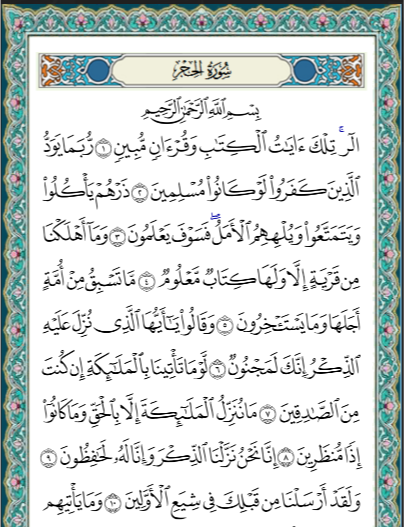 سُورَةُ الحِجۡرِ
بِسۡمِ ٱللَّهِ ٱلرَّحۡمَٰنِ ٱلرَّحِيمِ
الٓرۚ تِلۡكَ ءَايَٰتُ ٱلۡكِتَٰبِ وَقُرۡءَانٖ مُّبِينٖ ١ رُّبَمَا يَوَدُّ
ٱلَّذِينَ كَفَرُواْ لَوۡ كَانُواْ مُسۡلِمِينَ ٢ ذَرۡهُمۡ يَأۡكُلُواْ
وَيَتَمَتَّعُواْ وَيُلۡهِهِمُ ٱلۡأَمَلُۖ فَسَوۡفَ يَعۡلَمُونَ ٣ وَمَآ أَهۡلَكۡنَا
مِن قَرۡيَةٍ إِلَّا وَلَهَا كِتَابٞ مَّعۡلُومٞ ٤ مَّا تَسۡبِقُ مِنۡ أُمَّةٍ
أَجَلَهَا وَمَا يَسۡتَـٔۡخِرُونَ ٥ وَقَالُواْ يَٰٓأَيُّهَا ٱلَّذِي نُزِّلَ عَلَيۡهِ
ٱلذِّكۡرُ إِنَّكَ لَمَجۡنُونٞ ٦ لَّوۡمَا تَأۡتِينَا بِٱلۡمَلَٰٓئِكَةِ إِن كُنتَ
مِنَ ٱلصَّٰدِقِينَ ٧ مَا نُنَزِّلُ ٱلۡمَلَٰٓئِكَةَ إِلَّا بِٱلۡحَقِّ وَمَا كَانُوٓاْ
إِذٗا مُّنظَرِينَ ٨ إِنَّا نَحۡنُ نَزَّلۡنَا ٱلذِّكۡرَ وَإِنَّا لَهُۥ لَحَٰفِظُونَ ٩
وَلَقَدۡ أَرۡسَلۡنَا مِن قَبۡلِكَ فِي شِيَعِ ٱلۡأَوَّلِينَ ١٠ وَمَا يَأۡتِيهِم